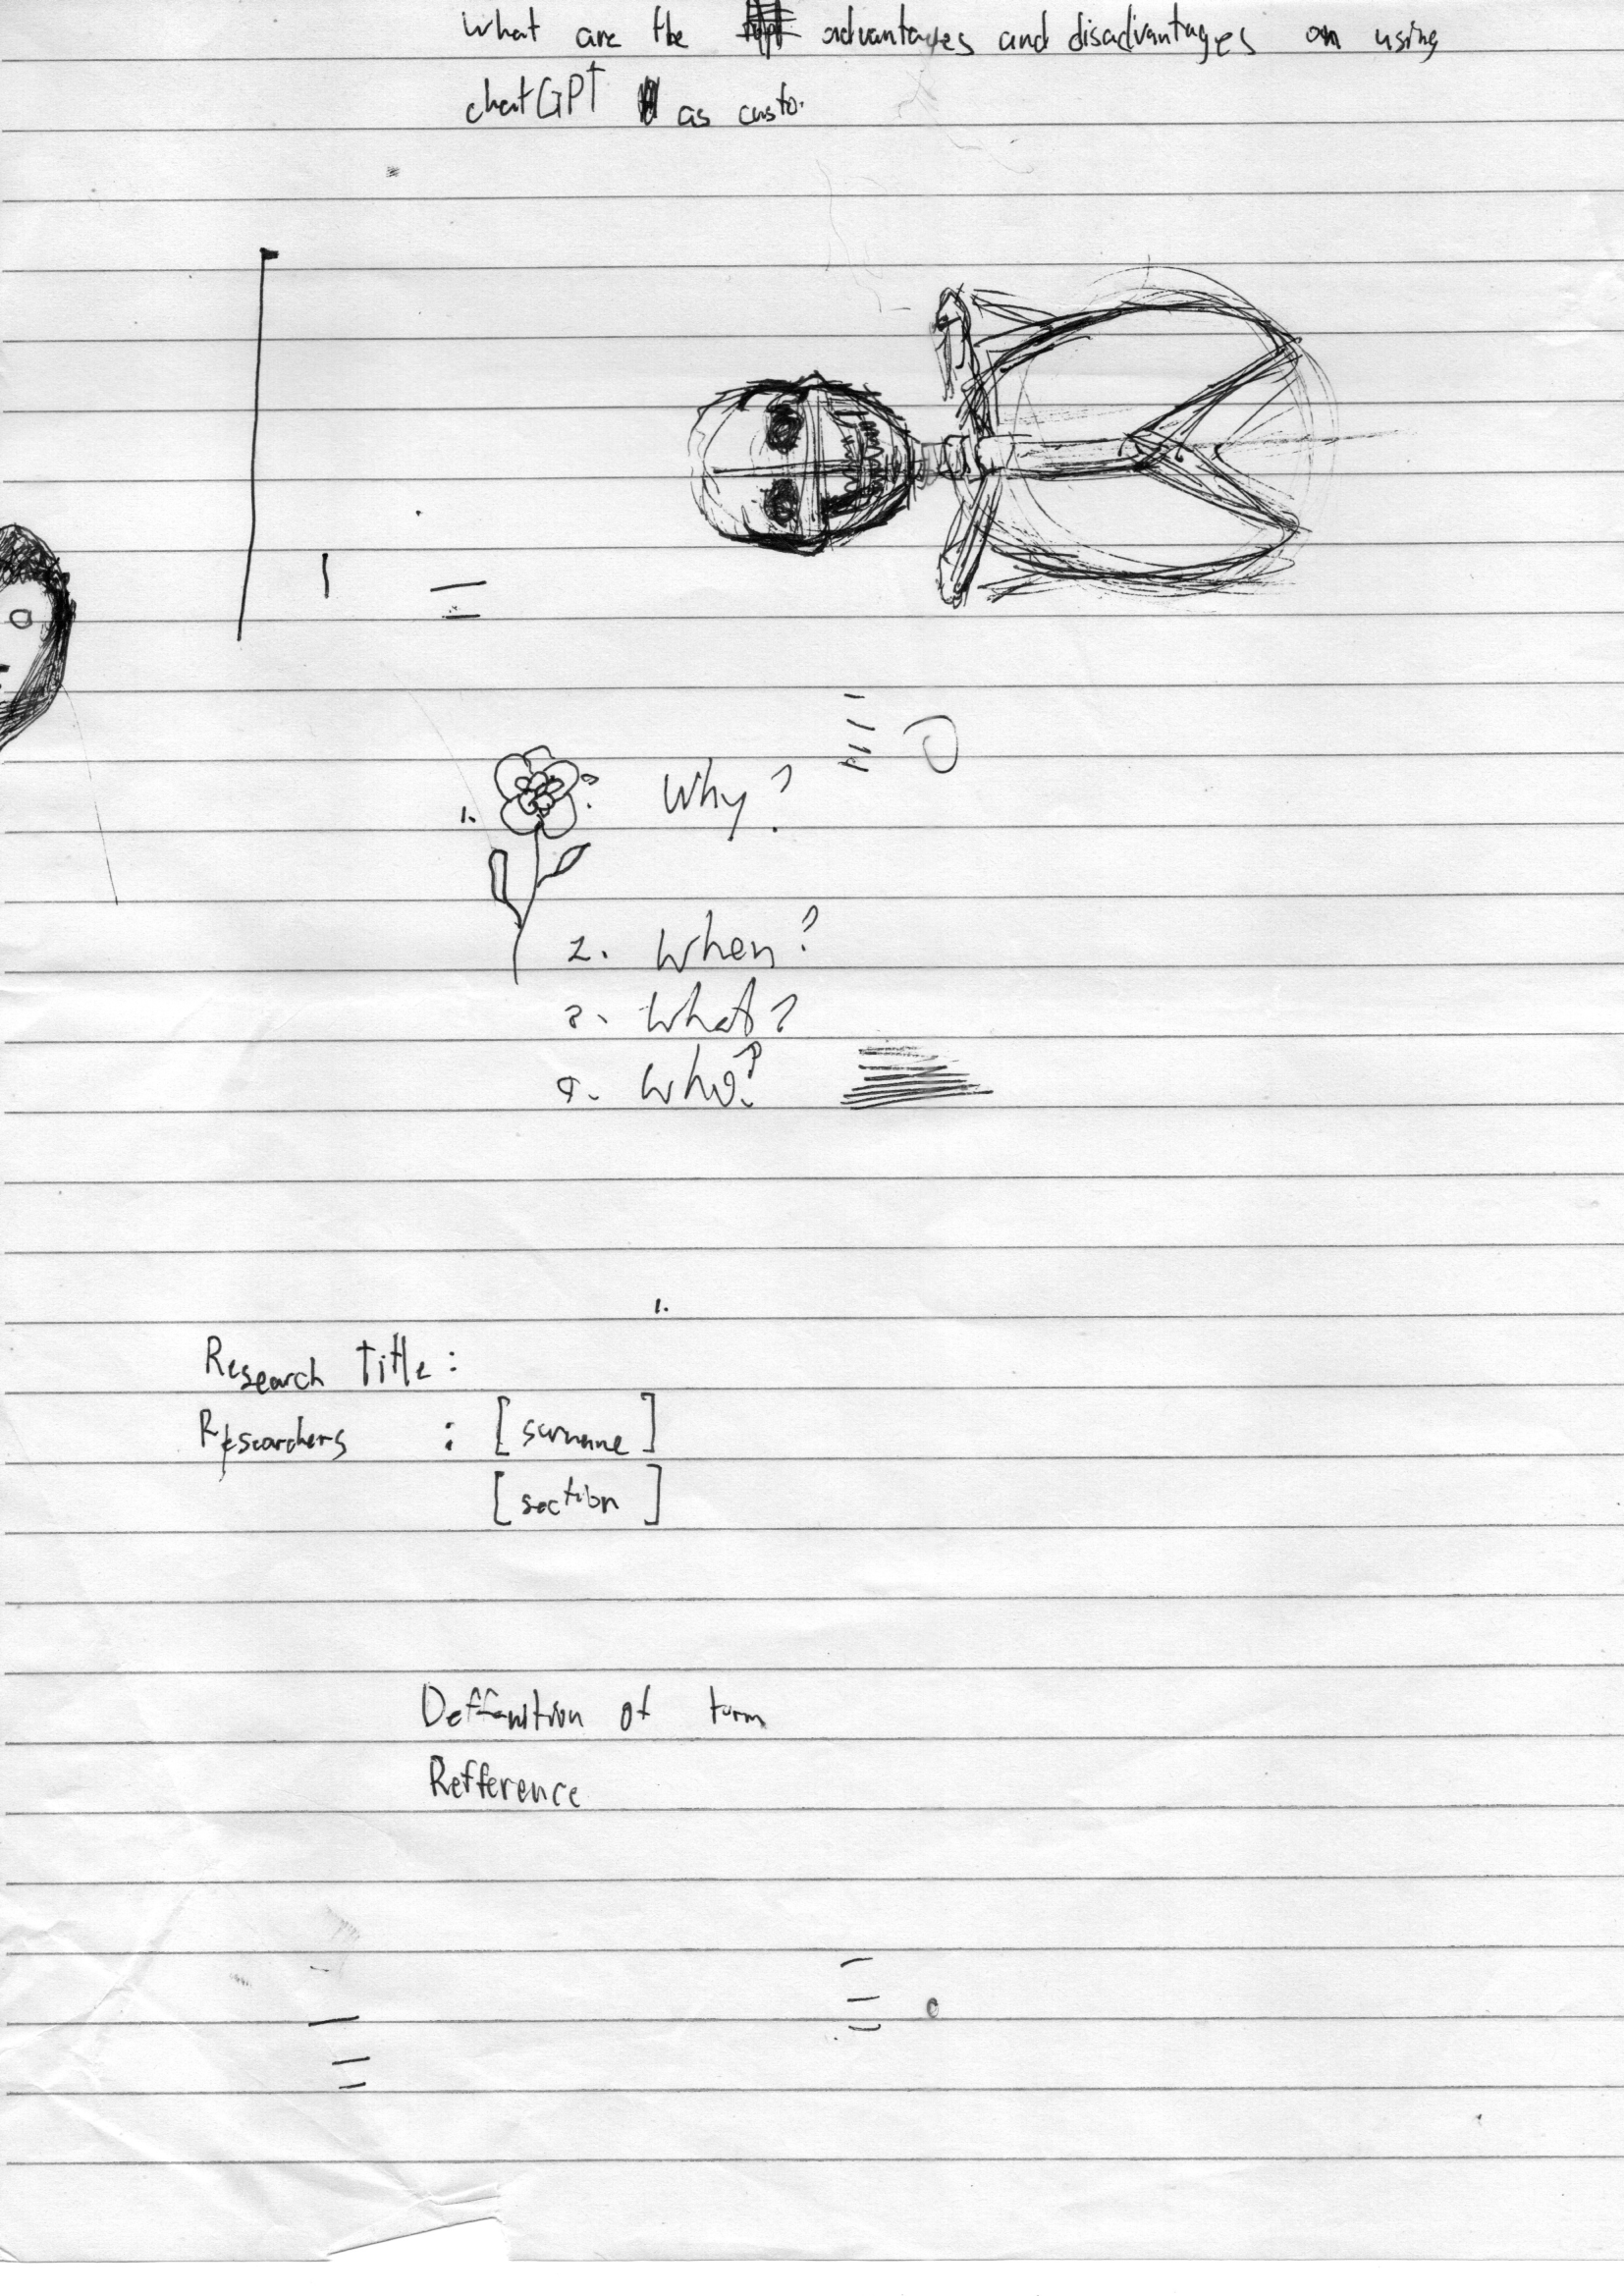 What are the advantages and disadvantages on using
chatGPT as custo.
1. ? Why?
2. When?
3. What?
4. Who?
1.
Research Title :
Researchers : [surname]
[section]
Deffenition of term
Refference